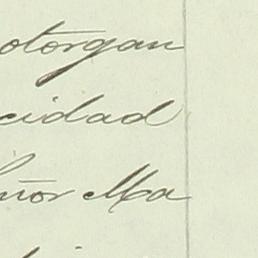 otorgan
cidad
eñor Ma